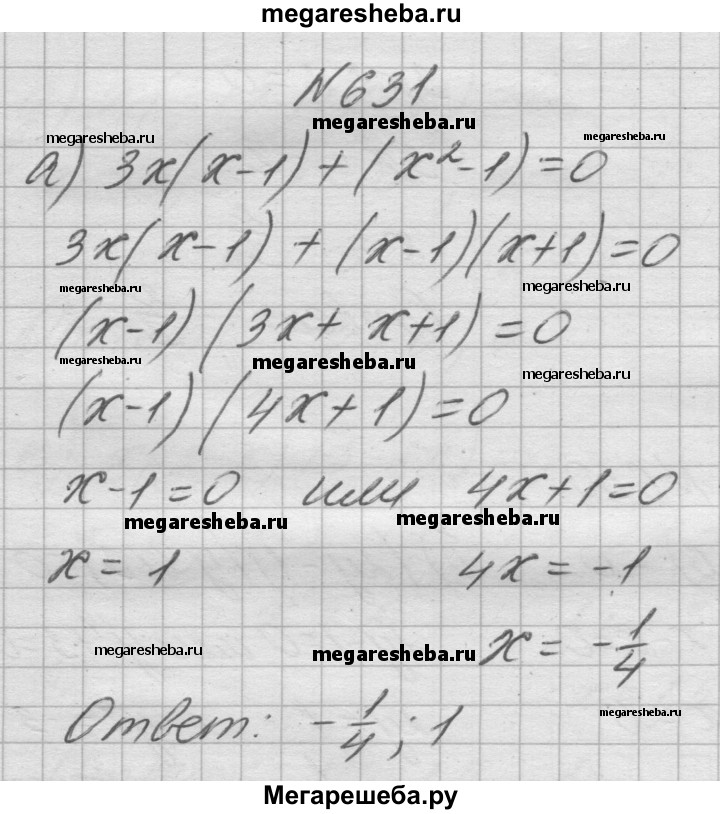 megaresheba.ru
N 631
megaresheba.ru
megaresheba.ru megaresheba.ru
а) 3x(x-1)+(x²-1)=0
3x(x-1)+(x-1)(x+1)=0
megaresheba.ru megaresheba.ru
(x-1)(3x+x+1)=0
megaresheba.ru megaresheba.ru megaresheba.ru
(x-1)(4x+1)=0
x-1=0 или 4x+1=0
megaresheba.ru megaresheba.ru
x=1 4x=-1
megaresheba.ru megaresheba.ru x=-1/4
megaresheba.ru
Ответ: -1/4; 1
Мегарешеба.ру